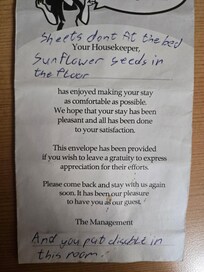 Sheets dont fit the bed
Your Housekeeper,
Sunflower seeds in
the floor
has enjoyed making your stay
as comfortable as possible.
We hope that your stay has been
pleasant and all has been done
to your satisfaction.
This envelope has been provided
if you wish to leave a gratuity to express
appreciation for their efforts.
Please come back and stay with us again
soon. It has been our pleasure
to have you as our guest.
The Management
And you put disable in
this room.